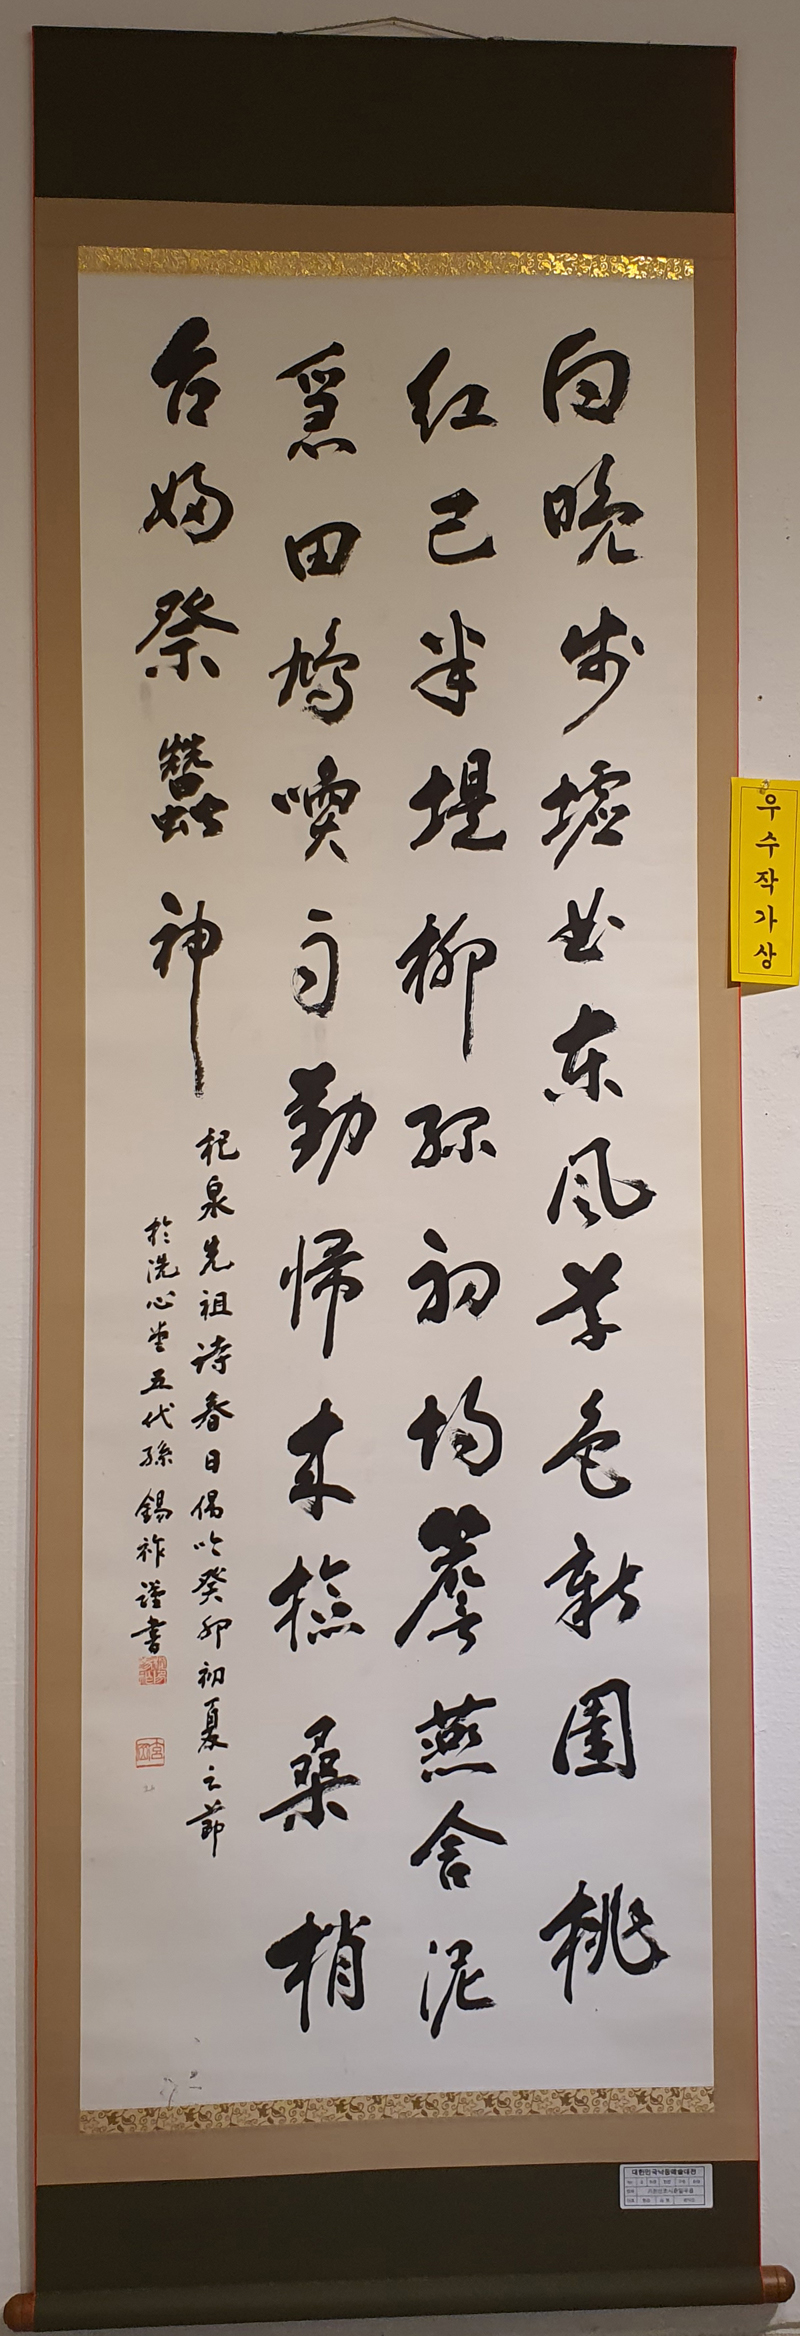 向晚步墟曲東風草色新園桃
紅已半堤柳綠初均簷燕含泥
急田鳩喚雨勤帰来檢桑梢
婦祭蠶神
杞泉先祖詩春日偶吟癸卯初夏之節
於洗心堂五代孫錫祚謹書
우수작가상